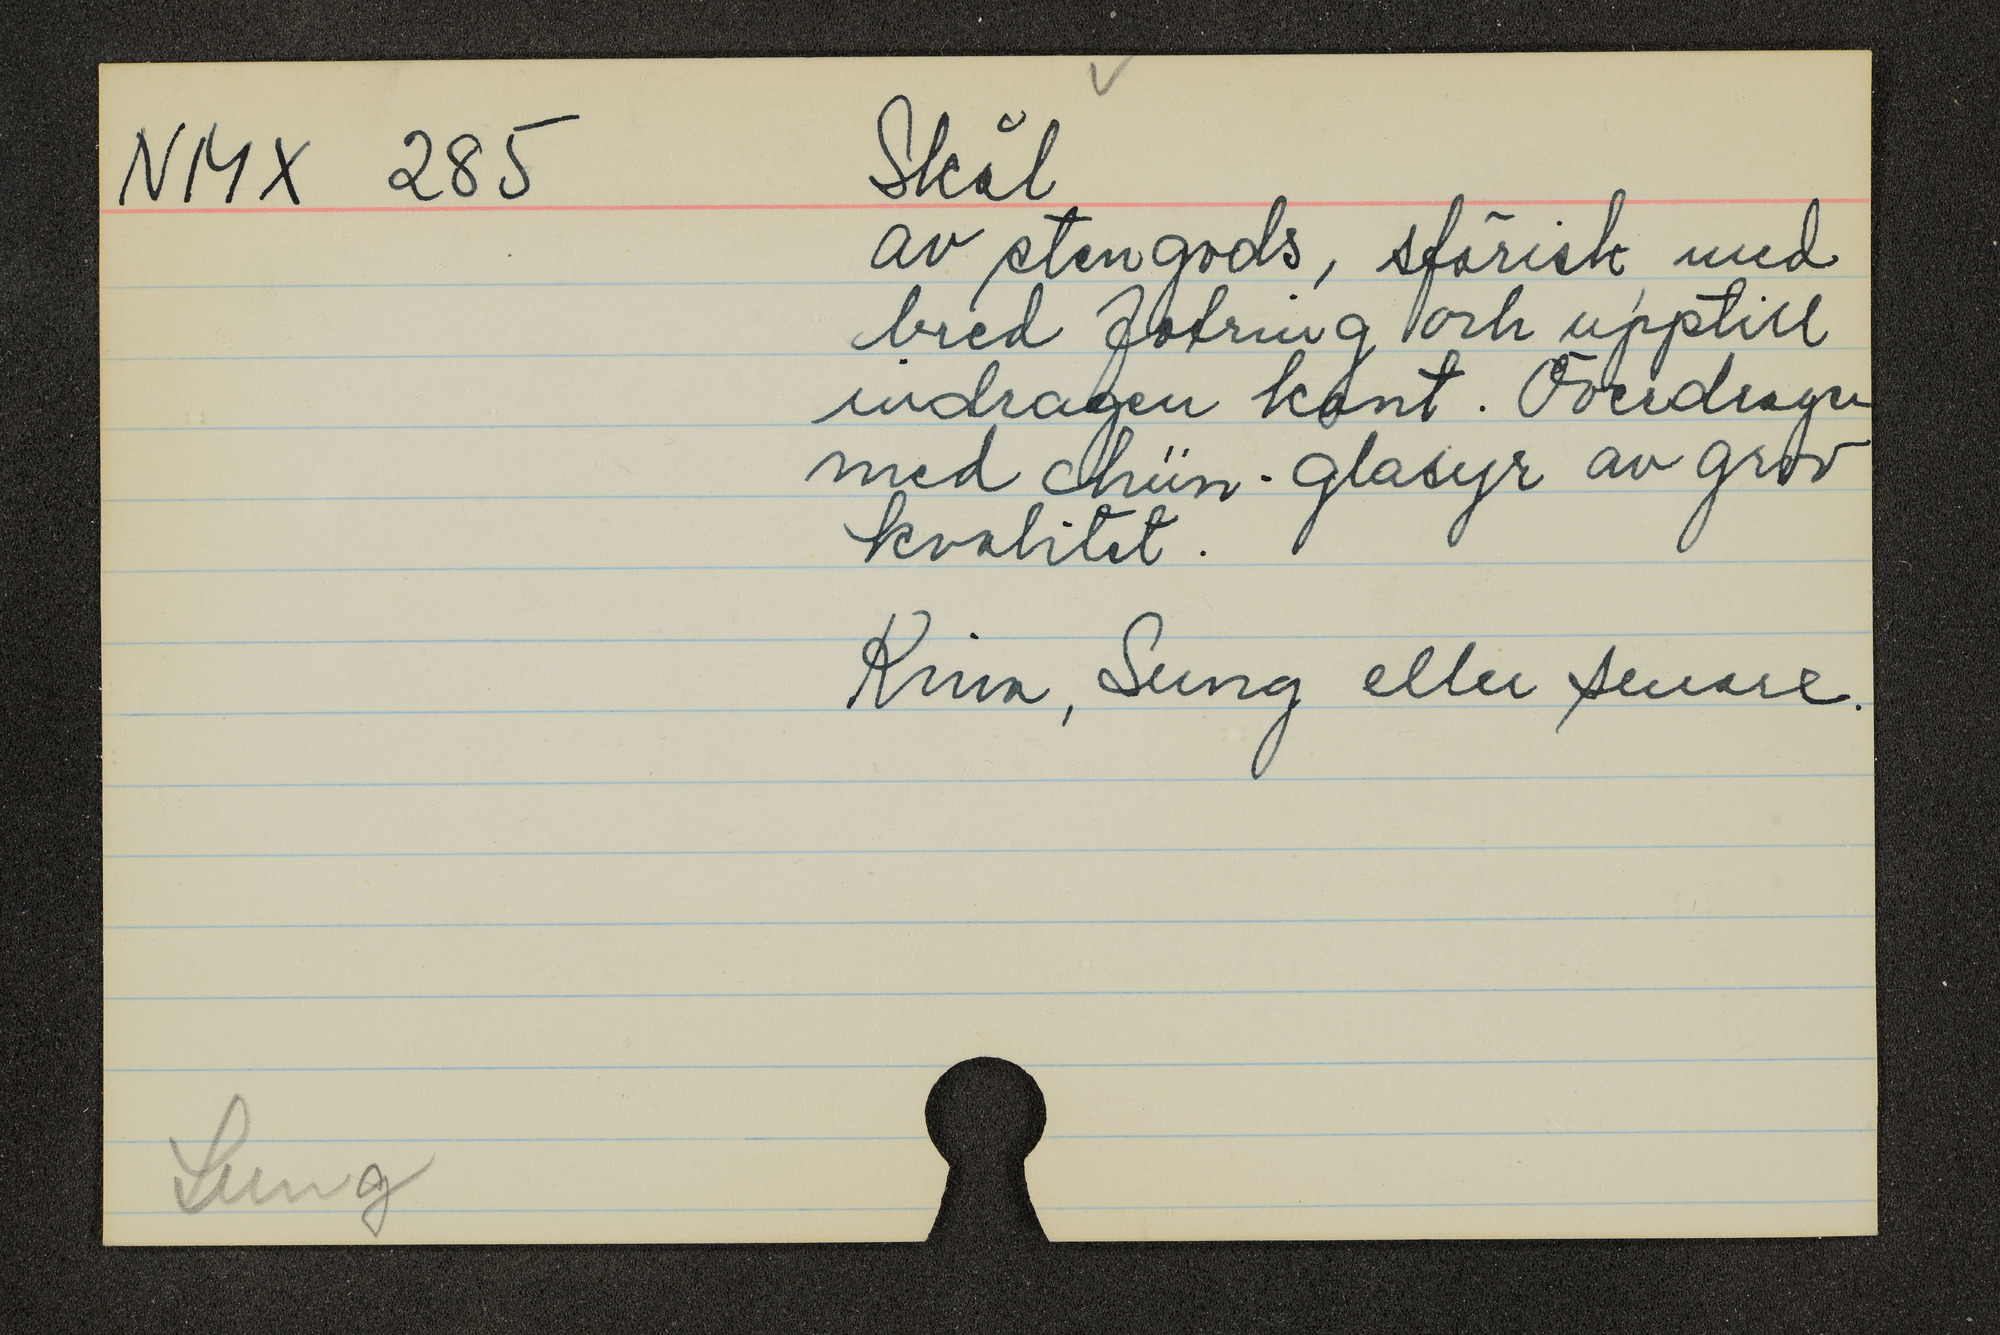 NMX 285 Skål
av stengods, sfärisk med
bred fotring och upptill
indragen kant. Överdragen
med chün-glasyr av grov
kvalitet.
Kina, Sung eller senare.
Sung